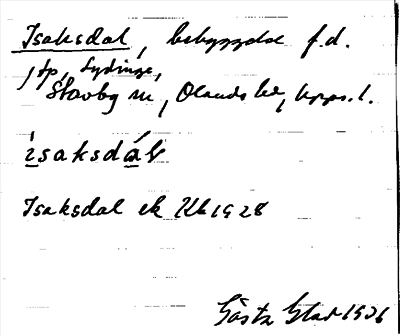 Isaksdal, bebyggelse f.d.
tp, Lydinge,
Stavby sn, Olands hd, Upps. l.
ìsaksdál
Isaksdal ek Kb 1928
Gösta Stad 1936